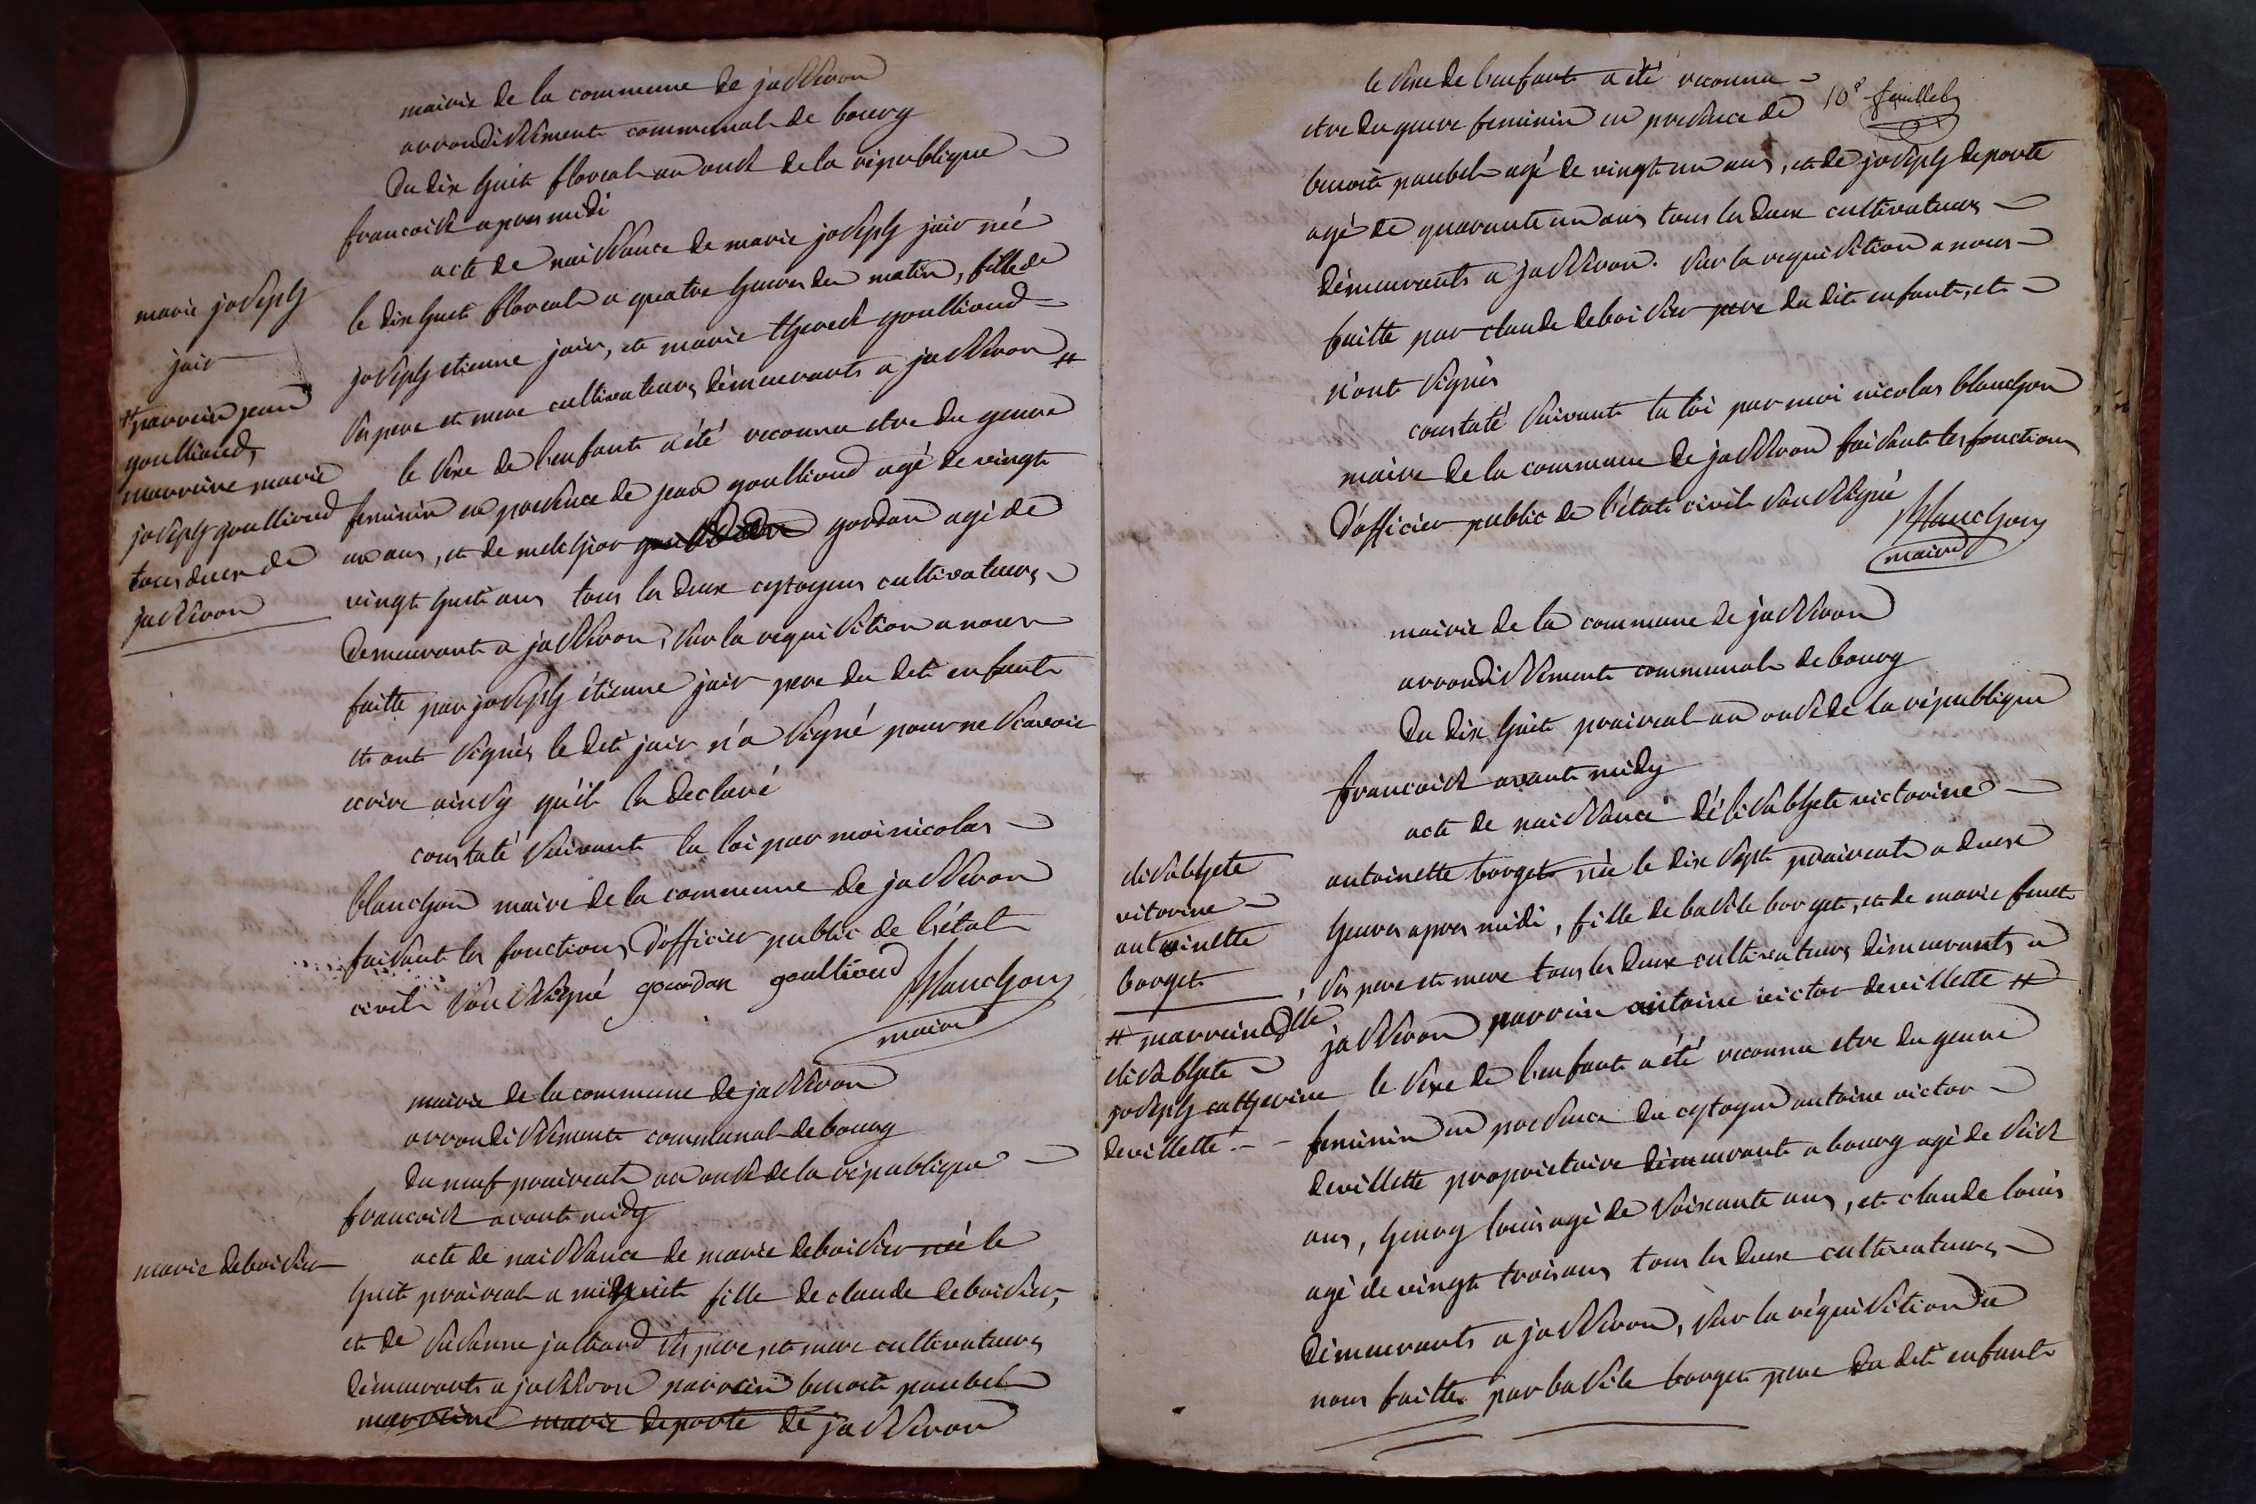 mairie de la commune de jasseron
arrondissement communal de bourg
du dix huit floreal an onze de la république
francoise apres midi
acte de naissance de marie joseph jair née
le dix huit floreal a quatre heures du matin, fille de
joseph etienne jair, et marie therese goulliond
ses pere et mere cultivateurs demeurants a jasseron #
marie joseph
jair
# parrein jean
goulliond,
marreine marie
joseph goulliond
tous deux de
jasseron
le sexe de l'enfant a été reconnu etre du genre
feminin en presence de jean goulliond agé de vingt
un ans, et de melchior gordan agé de
vingt huit ans tous les deux cytoyens cultivateurs
demeurants a jasseron, sur la requisition a nous
faitte par joseph étienne jair pere du dit enfant
et ont signés le dit jair n'a signé pour ne scavoir
ecrire ainsy qu'il la declaré
constaté suivant la loi par moi nicolas
blanchon maire de la commune de jasseron
faisant les fonctions d'officier public de l'état
civil soussigné gourdan goulliond Blanchon
maire
mairie de la commune de jasseron
arrondissement communal de bourg
du neuf prairial an onze de la république
francoise avant midy
marie deboisier
acte de naissance de marie deboisier née le
huit prairial a minuit fille de claude deboisier,
et de susanne josserand ses pere et mere cultivateurs
demeurants a jasseron parrein benoit paubel
marreine marie deporte de jasseron
10e feuillet
le sexe de l'enfant a été reconnu
etre du genre feminin en presence de
benoit paubel agé de vingt un ans, et de joseph deporte
agé de quarante un ans tous les deux cultivateurs
demeurants a jasseron. sur la requisition a nous
faitte par claude deboisier pere du dit enfant, et
n'ont signés
constaté suivant la loi par moi nicolas blanchon
maire de la commune de jasseron faisant les fonctions
d'officier public de l'état civil soussigné
Blanchon
maire
mairie de la commune de jasseron
arrondissement communal de bourg
du dix huit prairial an onze de la république
francoise avant midy
acte de naissance d'élisabhete victorine
antoinette borget née le dix sept prairial a deux
heures apres midi, fille de basile borget, et de marie
ses pere et mere tous les deux cultivateurs demeurants a
jasseron parrein antoine victor devillette #
elisabhete
vitorine
antoinette
borget
# marreine dlle
elisabhete
joseph catherine
devillette
le sexe de l'enfant a été reconnu etre du genre
feminin en presence du cytoyen antoine victor
devillette proprietaire demeurant a bourg agé de seize
ans, henry louis agé de soixante ans, et claude louis
agé de vingt trois ans tous les deux cultivateurs
demeurants a jasseron, sur la réquisition a
nous faitte par basile borget pere du dit enfant